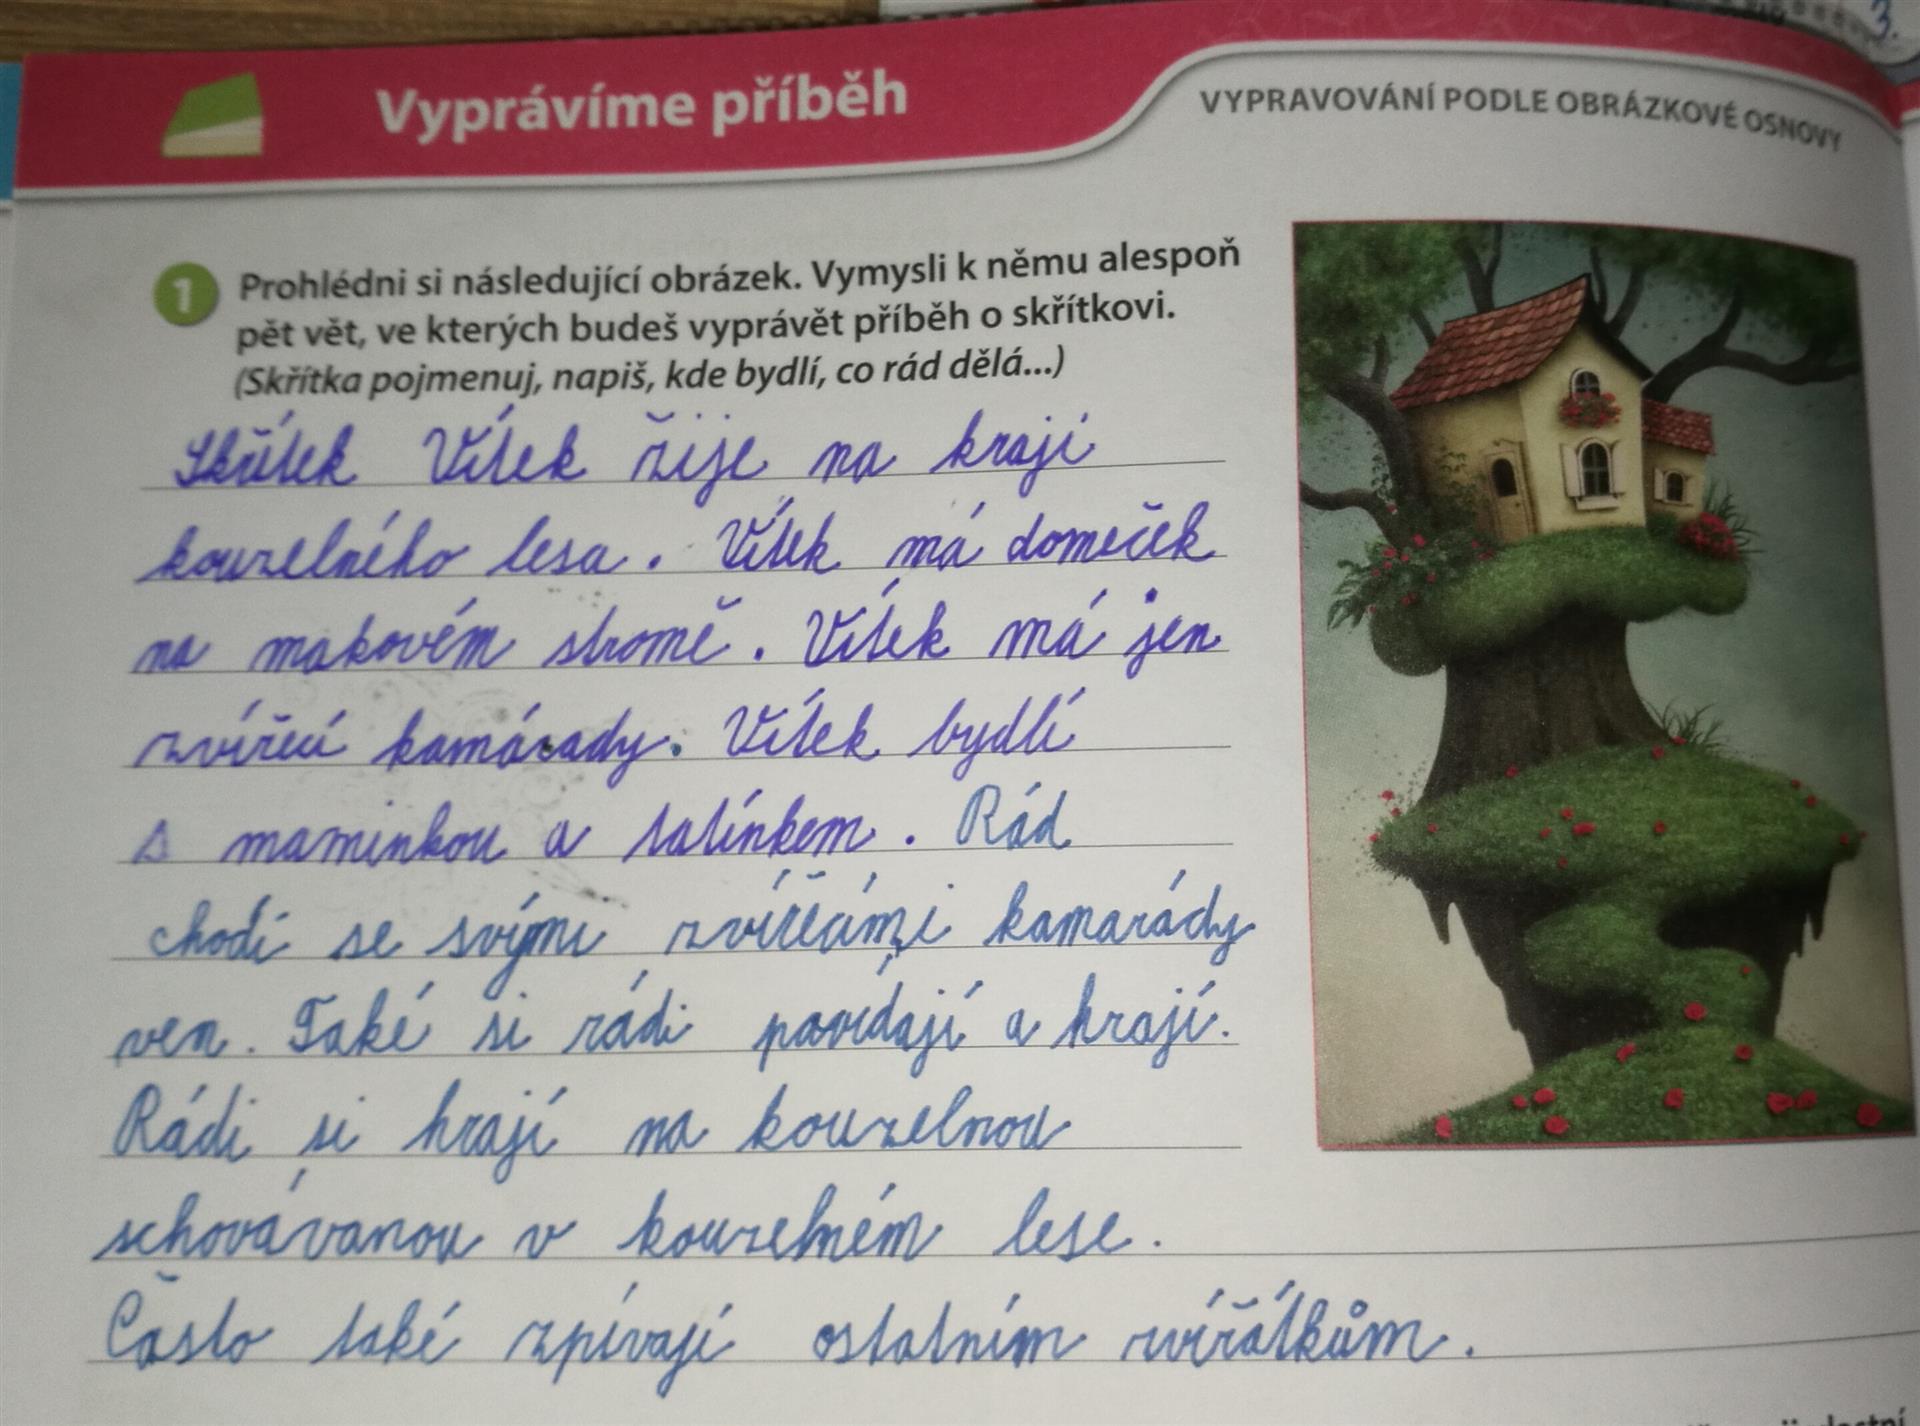 3.
Vyprávíme příběh
VYPRAVOVÁNÍ PODLE OBRÁZKOVÉ OSNOVY
1 Prohlédni si následující obrázek. Vymysli k němu alespoň
pět vět, ve kterých budeš vyprávět příběh o skřítkovi.
(Skřítka pojmenuj, napiš, kde bydlí, co rád dělá...)
Skřítek Vítek žije na kraji
kouzelného lesa. Vítek má domeček
na makovém stromě. Vítek má jen
zvířecí kamárady. Vítek bydlí
s maminkou a tatínkem. Rád
chodí se svými kamarády
ven. Také si rádi povídají a hrají.
Rádi si hrají na kouzelnou
schovávanou v kouzelném lese.
Často také zpívají ostatním zvířátkům.